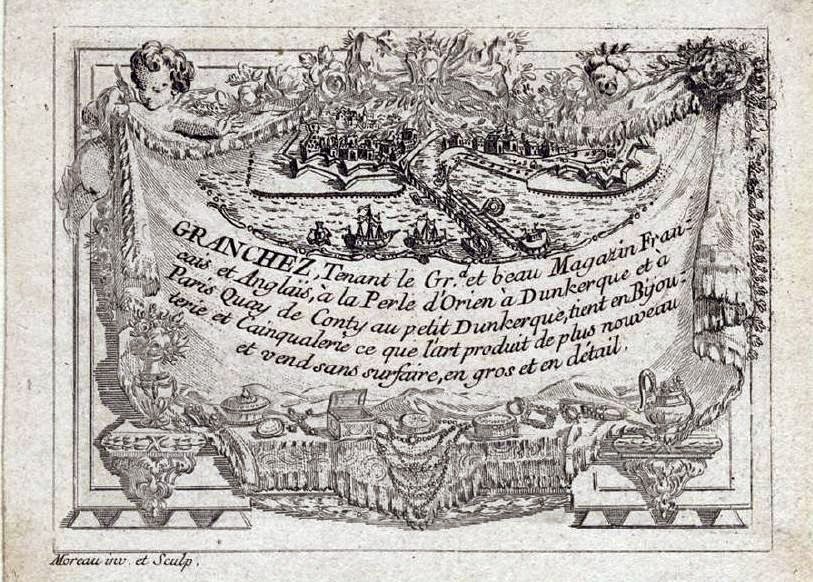 GRANCHEZ, Tenant le Gr.d et beau Magazin Fran-
cais et Anglais, à la Perle d'Orien a Dunkerque et a
Paris Quay de Conty au petit Dunkerque, tient en Bijou-
terie et Cainqualerie ce que l'art produit de plus nouveau
et vend sans surfaire, en gros et en détail.
Moreau inv. et Sculp.